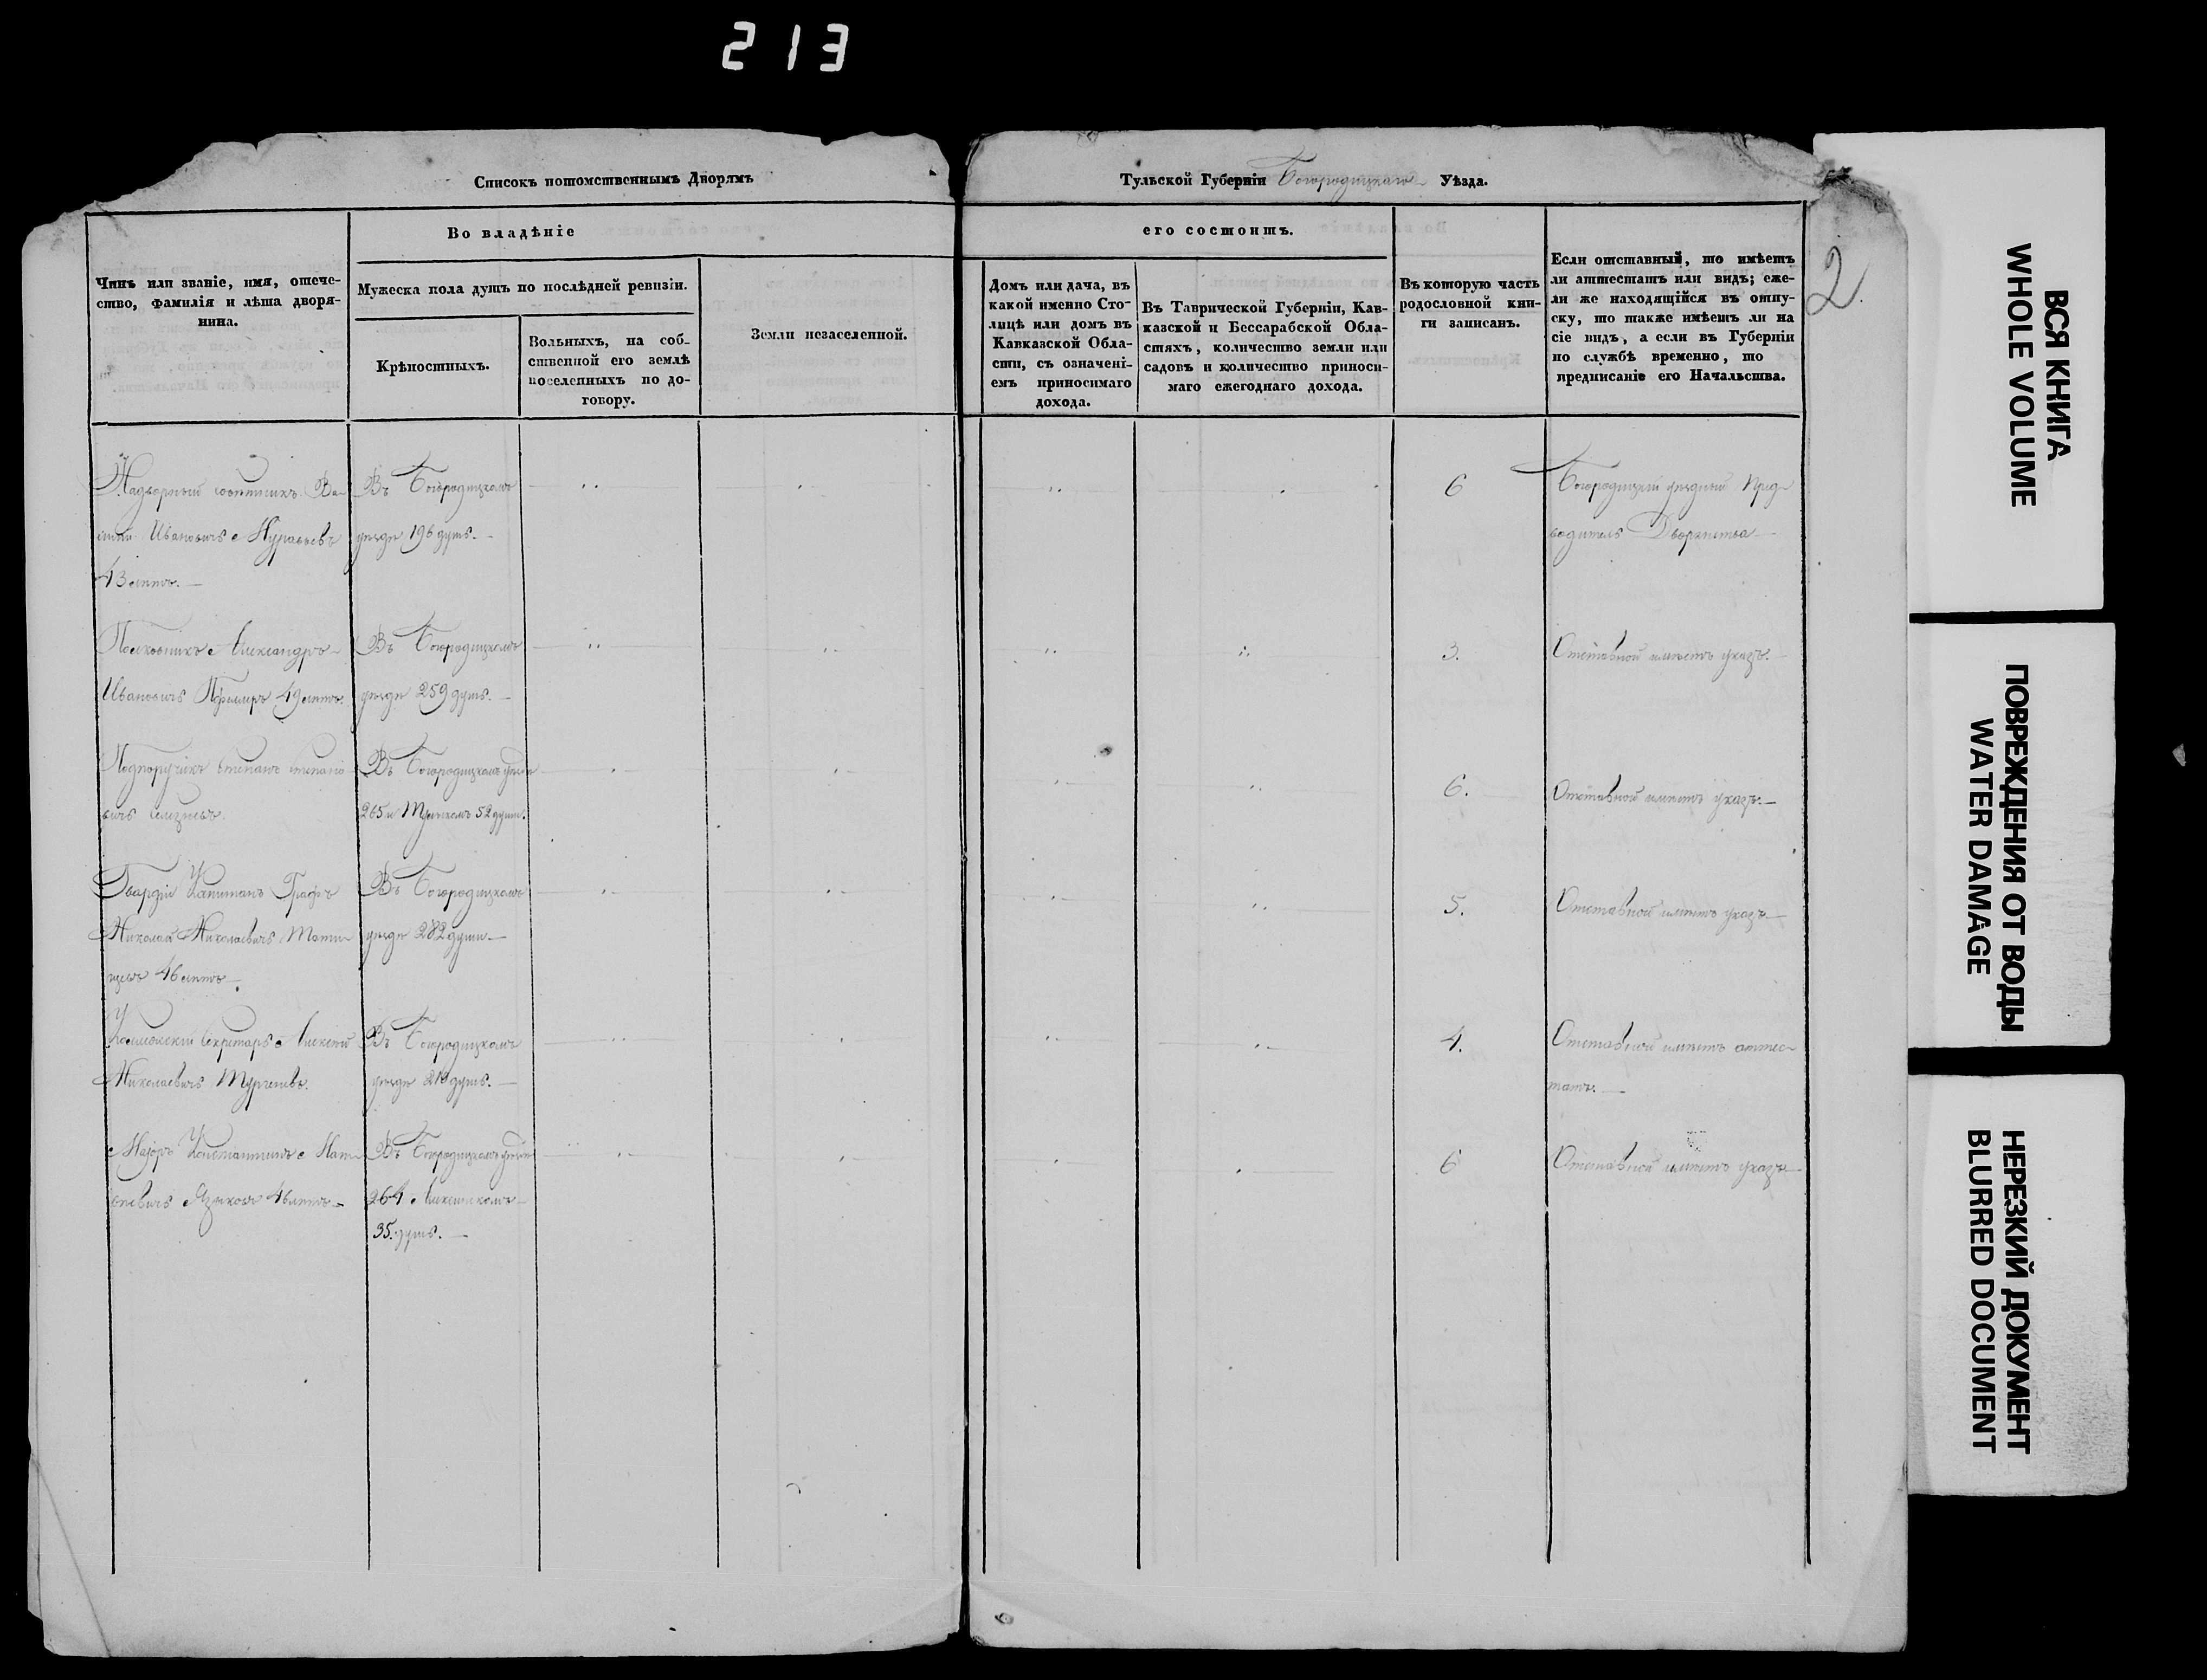 213
Списокъ потомственнымъ Дворямъ
Тульской Губерніи Богородицкаго Уѣзда.
2.
Во владѣніе
его состоитъ.
Чинъ или званіе, имя, отече-
ство, фамилія и лѣта дворя-
нина.
Мужеска пола душъ по послѣдней ревизіи.
Крѣпостныхъ.
Вольныхъ, на соб-
ственной его землѣ
поселенныхъ по до-
говору.
Земли незаселенной.
Домъ или дача, въ
какой именно Сто-
лицѣ или домъ въ
Кавказской Обла-
сти, съ означені-
емъ приносимаго
дохода.
Въ Таврической Губерніи, Кав-
казской и Бессарабской Обла-
стяхъ, количество земли или
садовъ и количество приноси-
маго ежегоднаго дохода.
Въ которую часть
родословной кни-
ги записанъ.
Если отставный, то имѣетъ
ли аттестатъ или видъ; еже-
ли же находящійся въ отпу-
ску, то также имѣетъ ли на
сіе видъ, а если въ Губерніи
по службѣ временно, то
предписаніе его Начальства.
Надворный совѣтникъ Ва-
силій Ивановичь Муравьевъ
43 лѣтъ.
Въ Богородицкомъ
уѣздѣ 196 душъ.
6
Богородицкій уѣздный Пред-
водитель Дворянства
Полковникъ Александръ
Ивановичь 49 лѣтъ.
Въ Богородицкомъ
уѣздѣ 259 душъ.
3.
Отставной имѣетъ указъ.
Подпоручикъ Степанъ Степано-
вичь
Въ Богородицкомъ уѣздѣ
265 и Тульскомъ 52 души.
6.
Отставной имѣетъ указъ.
Гвардіи Капитанъ Графъ
Николай Николаевичь Тати-
щевъ 46 лѣтъ
Въ Богородицкомъ
уѣздѣ 282 души
5.
Отставной имѣетъ указъ
Коллежскій Секретарь Алексѣй
Николаевичь Тургеневъ.
Въ Богородицкомъ
уѣздѣ душъ.
4.
Отставной имѣетъ аттес-
татъ.
Маіоръ Константинъ
Языковъ 46 лѣтъ
Въ Богородицкомъ уѣздѣ
264 Алексинскомъ
35 душъ.
6
Отставной имѣетъ указъ
ВСЯ КНИГА
WHOLE VOLUME
ПОВРЕЖДЕНИЯ ОТ ВОДЫ
WATER DAMAGE
НЕРЕЗКИЙ ДОКУМЕНТ
BLURRED DOCUMENT